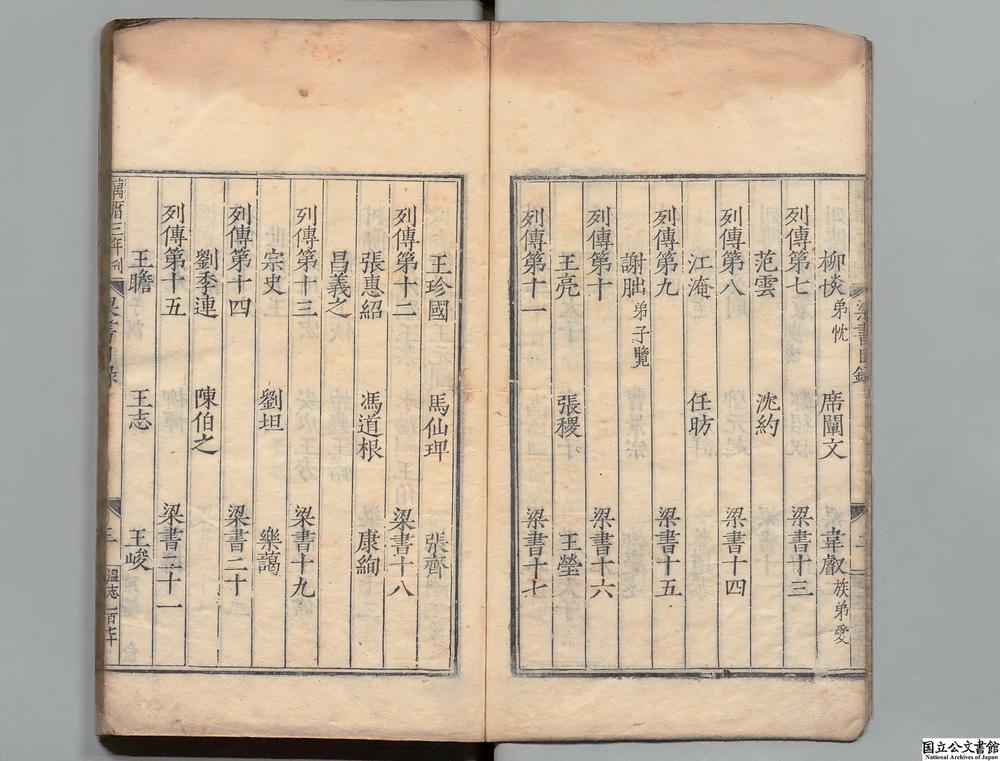 柳惔 弟忱 席闡文 韋叡 族弟愛
列傳第七 梁書十三
范雲 沈約
列傳第八 梁書十四
江淹 任昉
列傳第九 梁書十五
謝朏 弟子覽
列傳第十 梁書十六
王亮 張稷 王瑩
列傳第十一 梁書十七
梁書目錄 二
王珍國 馬仙琕 張齊
列傳第十二 梁書十八
張惠紹 馮道根 康絢
昌義之
列傳第十三 梁書十九
宗史 劉坦 樂藹
列傳第十四 梁書二十
劉季連 陳伯之
列傳第十五 梁書二十一
王瞻 王志 王峻
萬曆三年刊 梁書目錄 三
国立公文書館
National Archives of Japan